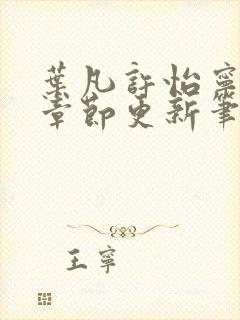 葉凡許怡寧
章節更新筆
王寧